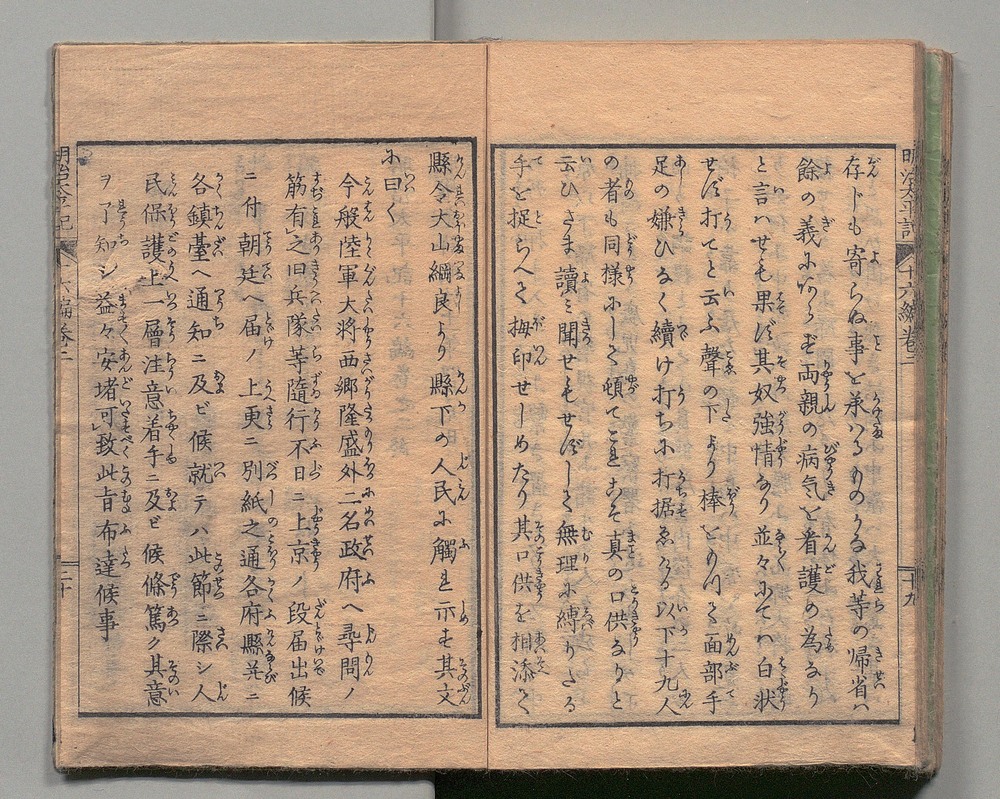 存じも寄らぬ事を承ハるものかな我等の帰省ハ
餘の義にあらず両親の病気を看護の為なり
と言ハせも果ず其奴強情なり並々にてハ白状
せず打てと云ふ聲の下より棒をもつて面部手
足の嫌ひなく續け打ちに打据ゑたる以下十九人
の者も同様にして頓てこれこそ真の口供なりと
云ひさま讀ミ聞せもせずして無理に縛りたる
手を捉らへて拇印せしめたり其口供を相添て
明治太平記
十六編卷二
十九
縣令大山綱良より縣下の人民に觸れ示す其文
に曰く
今般陸軍大将西郷隆盛外二名政府ヘ尋問ノ
筋有之旧兵隊等隨行不日ニ上京ノ段届出候
ニ付朝廷ヘ届ノ上更ニ別紙之通各府縣並ニ
各鎮臺ヘ通知ニ及ビ候就テハ此節ニ際シ人
民保護上一層注意着手ニ及ビ候條篤ク其意
ヲ了知シ益々安堵可致此旨布達候事
明治太平記
十六編卷二
二十